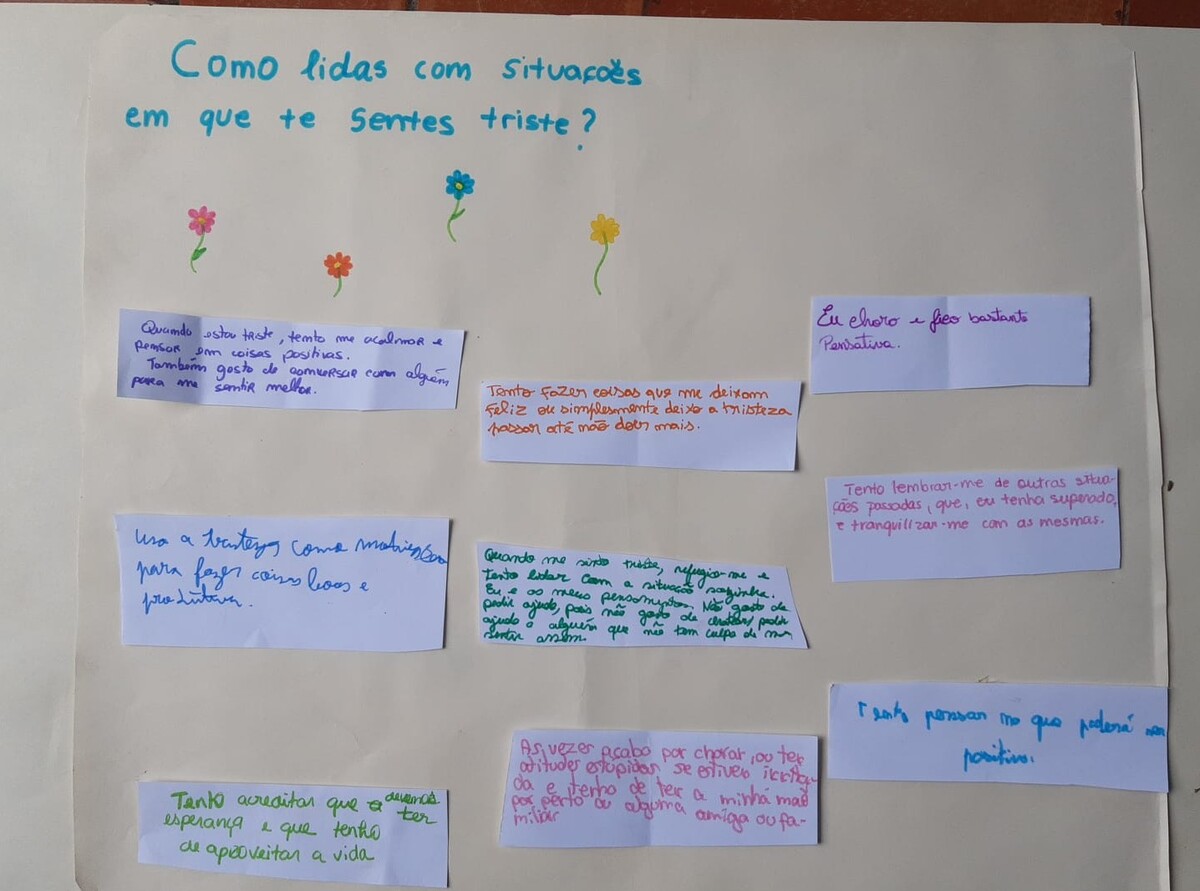 Como lidas com situações
em que te sentes triste?
Quando estou triste, tento me acalmar e
pensar em coisas positivas.
Também gosto de conversar com alguém
para me sentir melhor.
Tento fazer coisas que me deixam
feliz ou simplesmente deixo a tristeza
passar até não doer mais.
Eu choro e fico bastante
Pensativa.
Uso a tristeza como motivação
para fazer coisas boas e
produtiva.
Quando me sinto triste, refugio-me e
tento lidar com a situação sozinha.
Eu e os meus pensamentos. Não gosto de
pedir ajuda, pois não gosto de chatear/pedir
ajuda a alguém que não tem culpa de me
sentir assim.
Tento lembrar-me de outras situa-
ções passadas, que, eu tenha superado,
e tranquilizar-me com as mesmas.
Tento acreditar que devemos
esperança e que tenho ter
de aproveitar a vida
As vezes acabo por chorar, ou ter
atitudes estupidas se estiver irrita-
da e tenho de ter a minha mãe
por perto ou alguma amiga ou fa-
miliar
Tento pensar no que poderá ser
positivo.